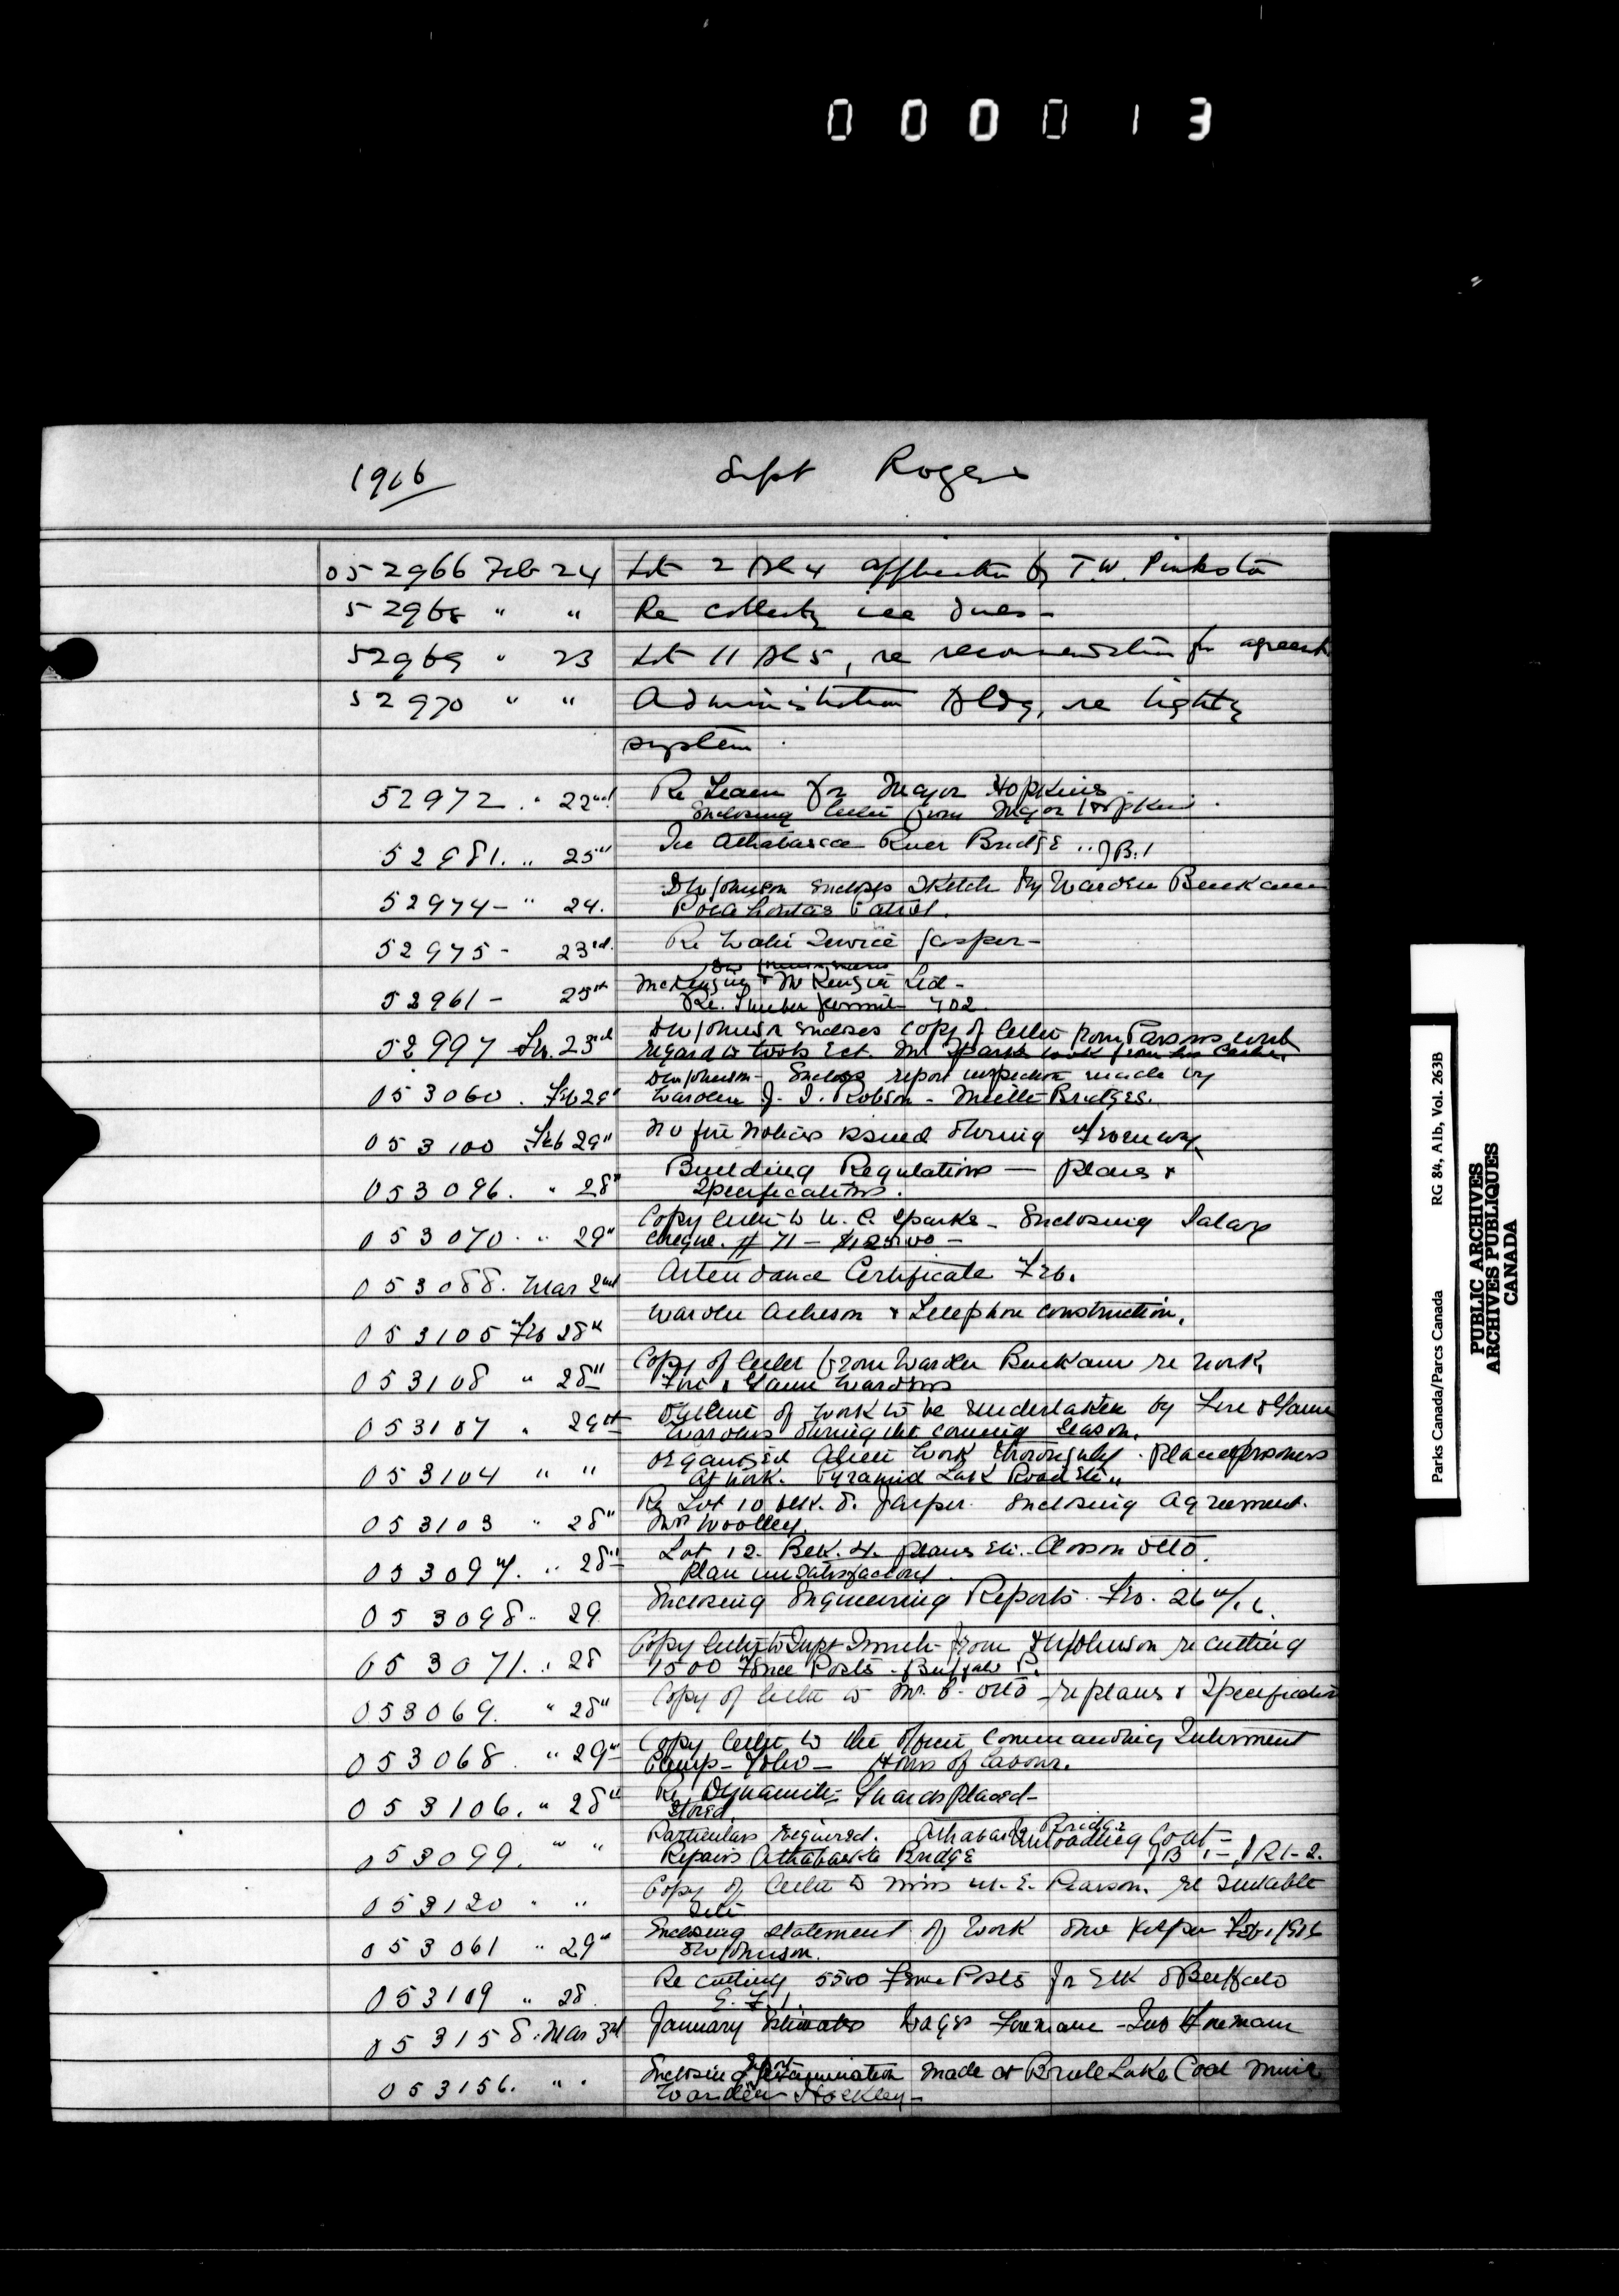 000013
1916 Supt Rogers
052966 Feb 24 Lot 2 Blk 4 application by T.W. Pinkston
52968 " " Re collecting ice dues -
52969 " 23 Lot 11 Blk 5, re recommendation for agreemt
52970 " " Administration Bldg, re lighting
system.
52972. " 22nd Re Team for Major Hopkins -
Enclosing letter from Major Hopkins.
52981. " 25th Ice Athabasca River Bridge .. JB.1
52974 - " 24. encloses Sketch by Warden
Pocahontas Patrol.
52975 - 23rd. Re Water Service Jasper -
52961 - 25th McKenzie & McKenzie Ltd -
Re. Timber permit 702
52997 Feb. 23rd encloses copy of letter from Parsons with
regard to tools Ect.
053060. Feb 29" report inspection made by
Warden J. I. Robson - Miette Bridges.
053100 Feb 29" No fire notices issued during
053096. " 28" Building Regulations — Plans &
Specifications.
053070. " 29" Copy letter to Sparks - Enclosing Salary
cheque. # 71 -
053088. Mar 2nd Attendance Certificate Feb.
053105 Feb 28th Warden Acheson & Telephone construction.
053108 " 28" Copy of letter from Warden re work
Fire & Game Wardens
053107 " 29th Outline of work to be undertaken by Fire & Game
Wardens during the coming Season.
053104 " " Organized Alien Work thoroughly. prisoners
at work. Pyramid Lake Road Etc..
053103 " 28" Re Lot 10 Blk. 8. Jasper. Enclosing Agreement.
Woolley.
053097. " 28" Lot 12. Blk. 4. plans Etc. Otto.
Plan unsatisfactory.
053098 " 29 Enclosing Engineering Reports. Feb. 26th/16.
053071. " 28 Copy letter to Supt from Johnson re cutting
1500 Fence Posts - Buffalo P.
053069. " 28" Copy of letter to Mr. Otto - re plans & Specification
053068 " 29" Copy letter to the Officer Commanding Internment
Camp - Yoho - Hours of labour.
053106. " 28" Re Dynamite - Guards placed -
Stored.
053099. " " Particulars required. Athabaska Bridge Unloading Coal -
Repairs Athabaska Bridge JB 1 - JR1-2.
053120 " " Copy of letter to Miss M. E. Pearson. re suitable
Site
053061 " 29" Enclosing statement of work Feb. 1916
Johnson.
053109 " 28. Re cutting 5500 Fence Posts for Elk & Buffalo
E. F. 1.
053158. Mar 3rd January Estimates Wages Foreman - Foreman
053156. " " Enclosing Report Examination made at Brule Lake Coal Mine
Warden Hockley -
Parks Canada/Parcs Canada RG 84, A1b, Vol. 263B
PUBLIC ARCHIVES
ARCHIVES PUBLIQUES
CANADA